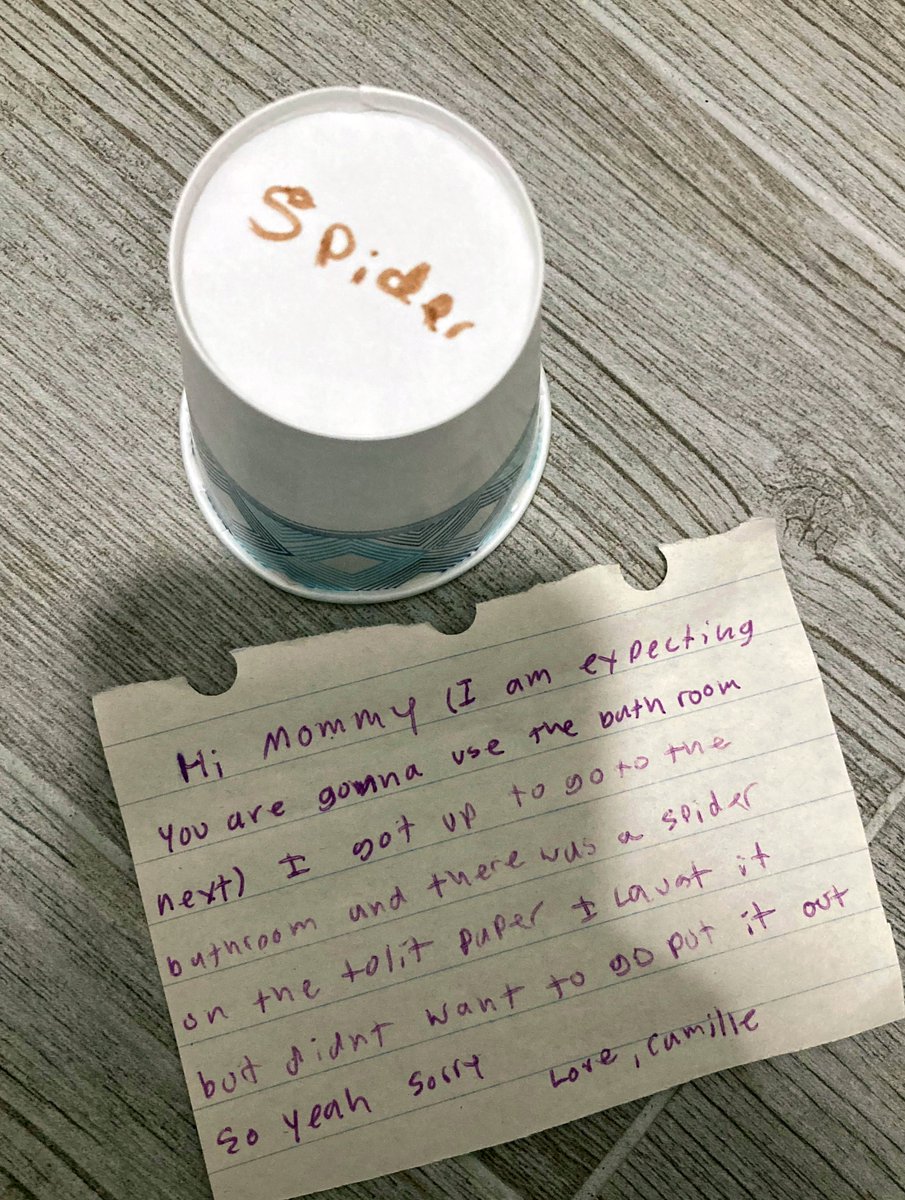 Spider
Hi Mommy (I am expecting
you are gonna use the bath room
next) I got up to go to the
bathroom and there was a spider
on the tolit paper I cauat it
but didnt want to go put it out
So yeah sorry Love, camille